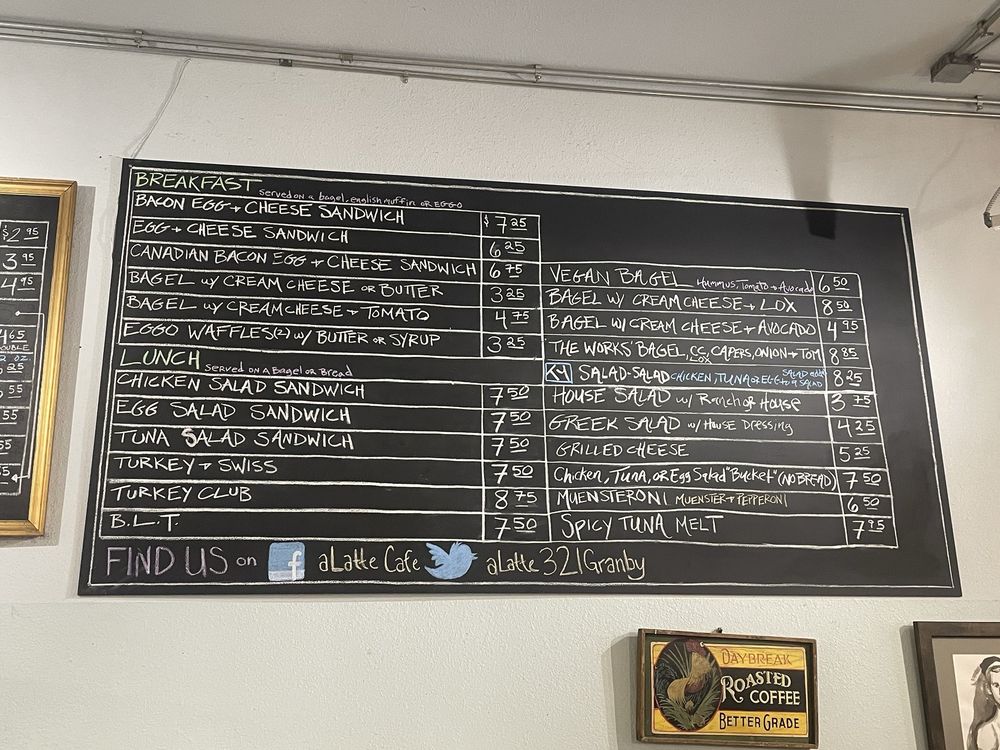 BREAKFAST Served on a bagel, english muffin OR EGGO
BACON EGG + CHEESE SANDWICH $7 25
EGG + CHEESE SANDWICH 6 25
CANADIAN BACON EGG + CHEESE SANDWICH 6 75
BAGEL w/ CREAM CHEESE OR BUTTER 3 25
BAGEL w/ CREAM CHEESE + TOMATO 4 75
EGGO WAFFLES(2) w/ BUTTER OR SYRUP 3 25
LUNCH Served on a Bagel or Bread
CHICKEN SALAD SANDWICH 7 50
EGG SALAD SANDWICH 7 50
TUNA SALAD SANDWICH 7 50
TURKEY + SWISS 7 50
TURKEY CLUB 8 75
B.L.T. 7 50
VEGAN BAGEL Hummus, Tomato + Avocado 6 50
BAGEL W/ CREAM CHEESE + LOX 8 50
BAGEL W/ CREAM CHEESE + AVOCADO 4 95
THE WORKS' BAGEL, CC, LOX, CAPERS, ONION + TOM 8 85
SALAD-SALAD CHICKEN, TUNA OR EGG SALAD 8 25
HOUSE SALAD w/ Ranch or House 3 75
GREEK SALAD w/ House Dressing 4 25
GRILLED CHEESE 5 25
Chicken, Tuna, or Egg Salad "Bucket" (NO BREAD) 7 50
MUENSTERONI MUENSTER + PEPPERONI 6 50
SPICY TUNA MELT 7 95
FIND US on f aLatte Cafe aLatte321Granby
$2 95
3 95
4 95
4 65
DAYBREAK
ROASTED
COFFEE
BETTER GRADE